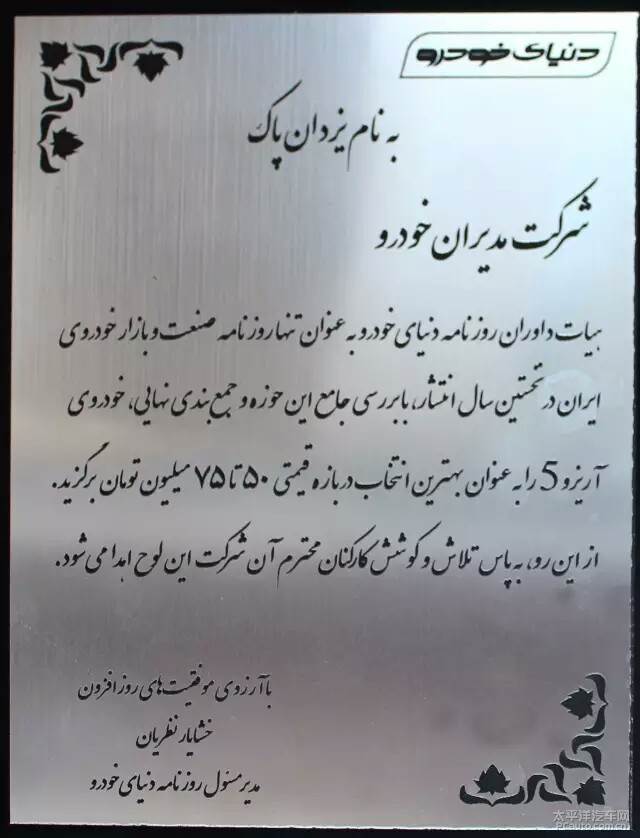 دنیای خودرو
به نام یزدان پاک
شرکت مدیران خودرو
هیات داوران روزنامه دنیای خودرو به عنوان تنها روزنامه صنعت و بازار خودروی
ایران در نخستین سال انتشار، با بررسی جامع این حوزه و جمع بندی نهایی، خودروی
آریزو 5 را به عنوان بهترین انتخاب در بازه قیمتی ۵۰ تا ۷۵ میلیون تومان برگزید.
از این رو، به پاس تلاش و کوشش کارکنان محترم آن شرکت این لوح اهدا می شود.
با آرزوی موفقیت های روز افزون
خشایار نظریان
مدیر مسئول روزنامه دنیای خودرو
太平洋汽车网
PCauto.com.cn